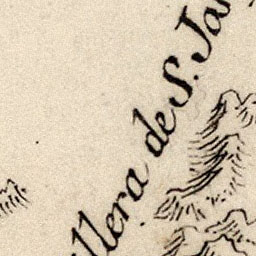 llera de S. Ja